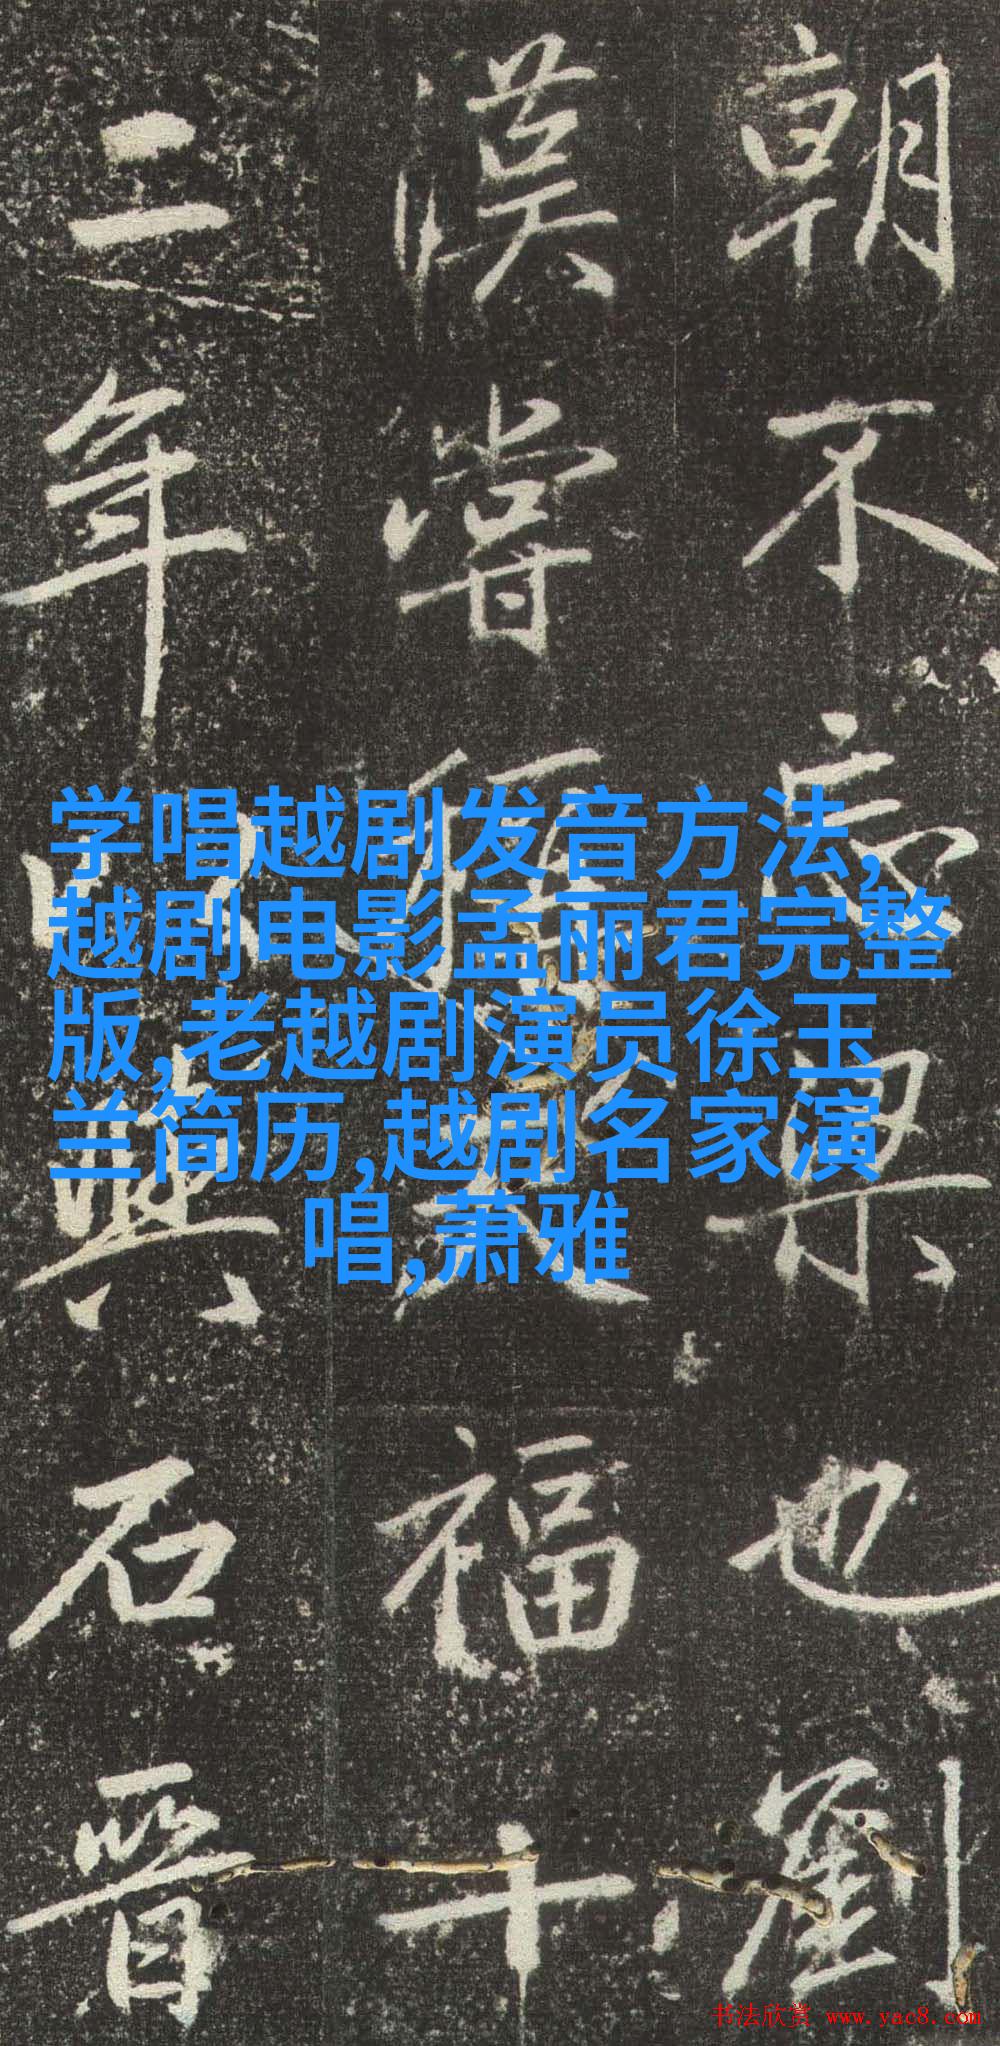 朝不也劉
漢嘗福十
二年石晉
学唱越剧发音方法,
越剧电影孟丽君完整
版,老越剧演员徐玉
兰简历,越剧名家演
唱,萧雅
书法欣赏 www.yac8.com